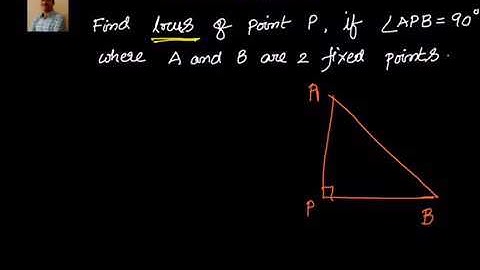 Find locus of point P, if ∠APB = 90°
where A and B are 2 fixed points.
A
P
B